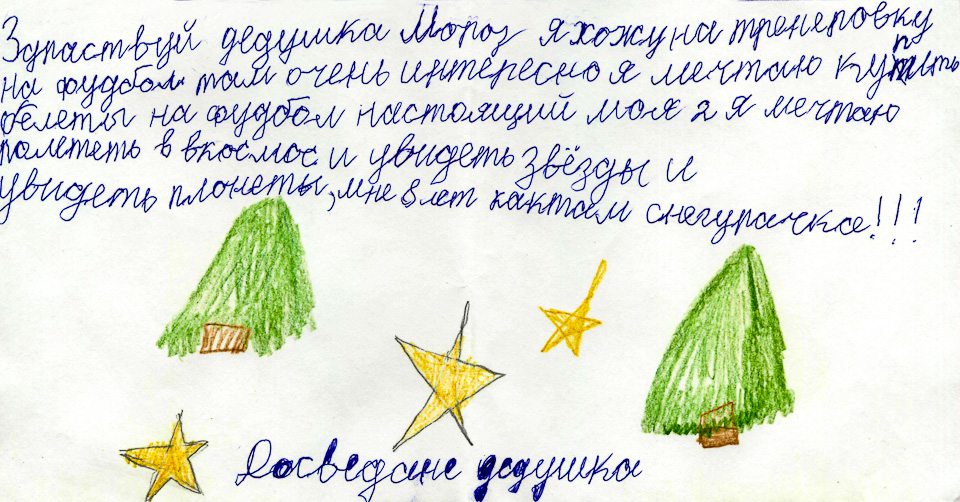 Здраствуй дедушка Мороз я хожу на тренеровку
на фудбол там очень интересно я мечтаю купить
белеты на фудбол настоящий моя 2 я мечтаю
полететь в вкосмос и увидеть звёзды и
увидеть плонеты, мне 8 лет как там снегурачка!!!
Досведане дедушка